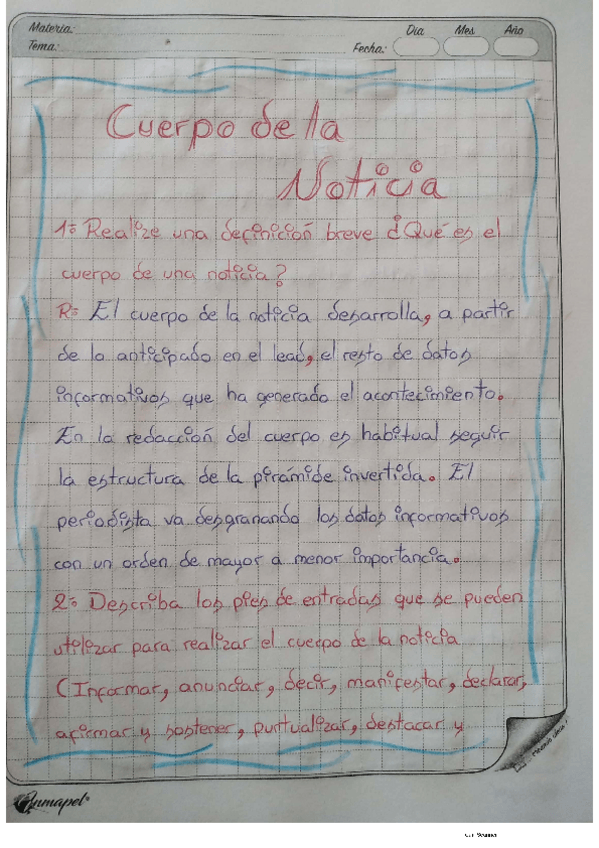 Materia:
Dia Mes Año
Tema: Fecha:
Cuerpo de la
Noticia
1= Realize una definición breve ¿Qué es el
cuerpo de una noticia?
R= El cuerpo de la noticia desarrolla, a partir
de lo anticipado en el lead, el resto de datos
informativos que ha generado el acontecimiento.
En la redacción del cuerpo es habitual seguir
la estructura de la pirámide invertida. El
periodista va desgranando los datos informativos
con un orden de mayor a menor importancia.
2= Describa los pies de entradas que se pueden
utilizar para realizar el cuerpo de la noticia
(Informar, anunciar, decir, manifestar, declarar,
afirmar y sostener, puntualizar, destacar y
Inmapel